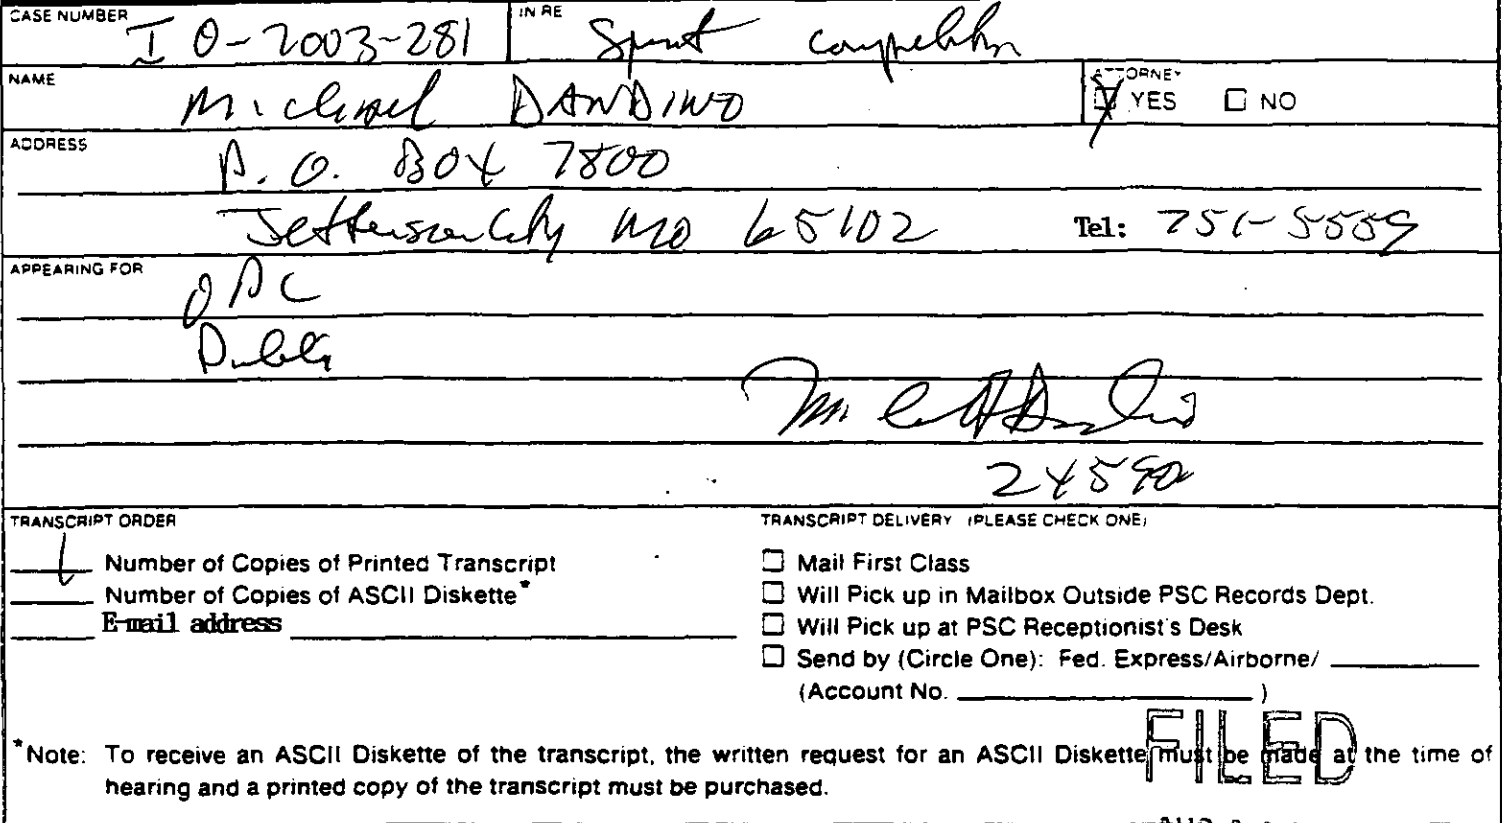 CASE NUMBER IO-2003-281 IN RE Sprint competition
NAME Michael DANDINO ATTORNEY YES NO
ADDRESS P.O. BOX 7800
Jefferson City MO 65102 Tel: 751-5559
APPEARING FOR OPC
Public
TRANSCRIPT ORDER
Number of Copies of Printed Transcript
Number of Copies of ASCII Diskette*
E-mail address
TRANSCRIPT DELIVERY (PLEASE CHECK ONE)
Mail First Class
Will Pick up in Mailbox Outside PSC Records Dept.
Will Pick up at PSC Receptionist's Desk
Send by (Circle One): Fed. Express/Airborne/
(Account No. )
FILED
*Note: To receive an ASCII Diskette of the transcript, the written request for an ASCII Diskette must be made at the time of
hearing and a printed copy of the transcript must be purchased.